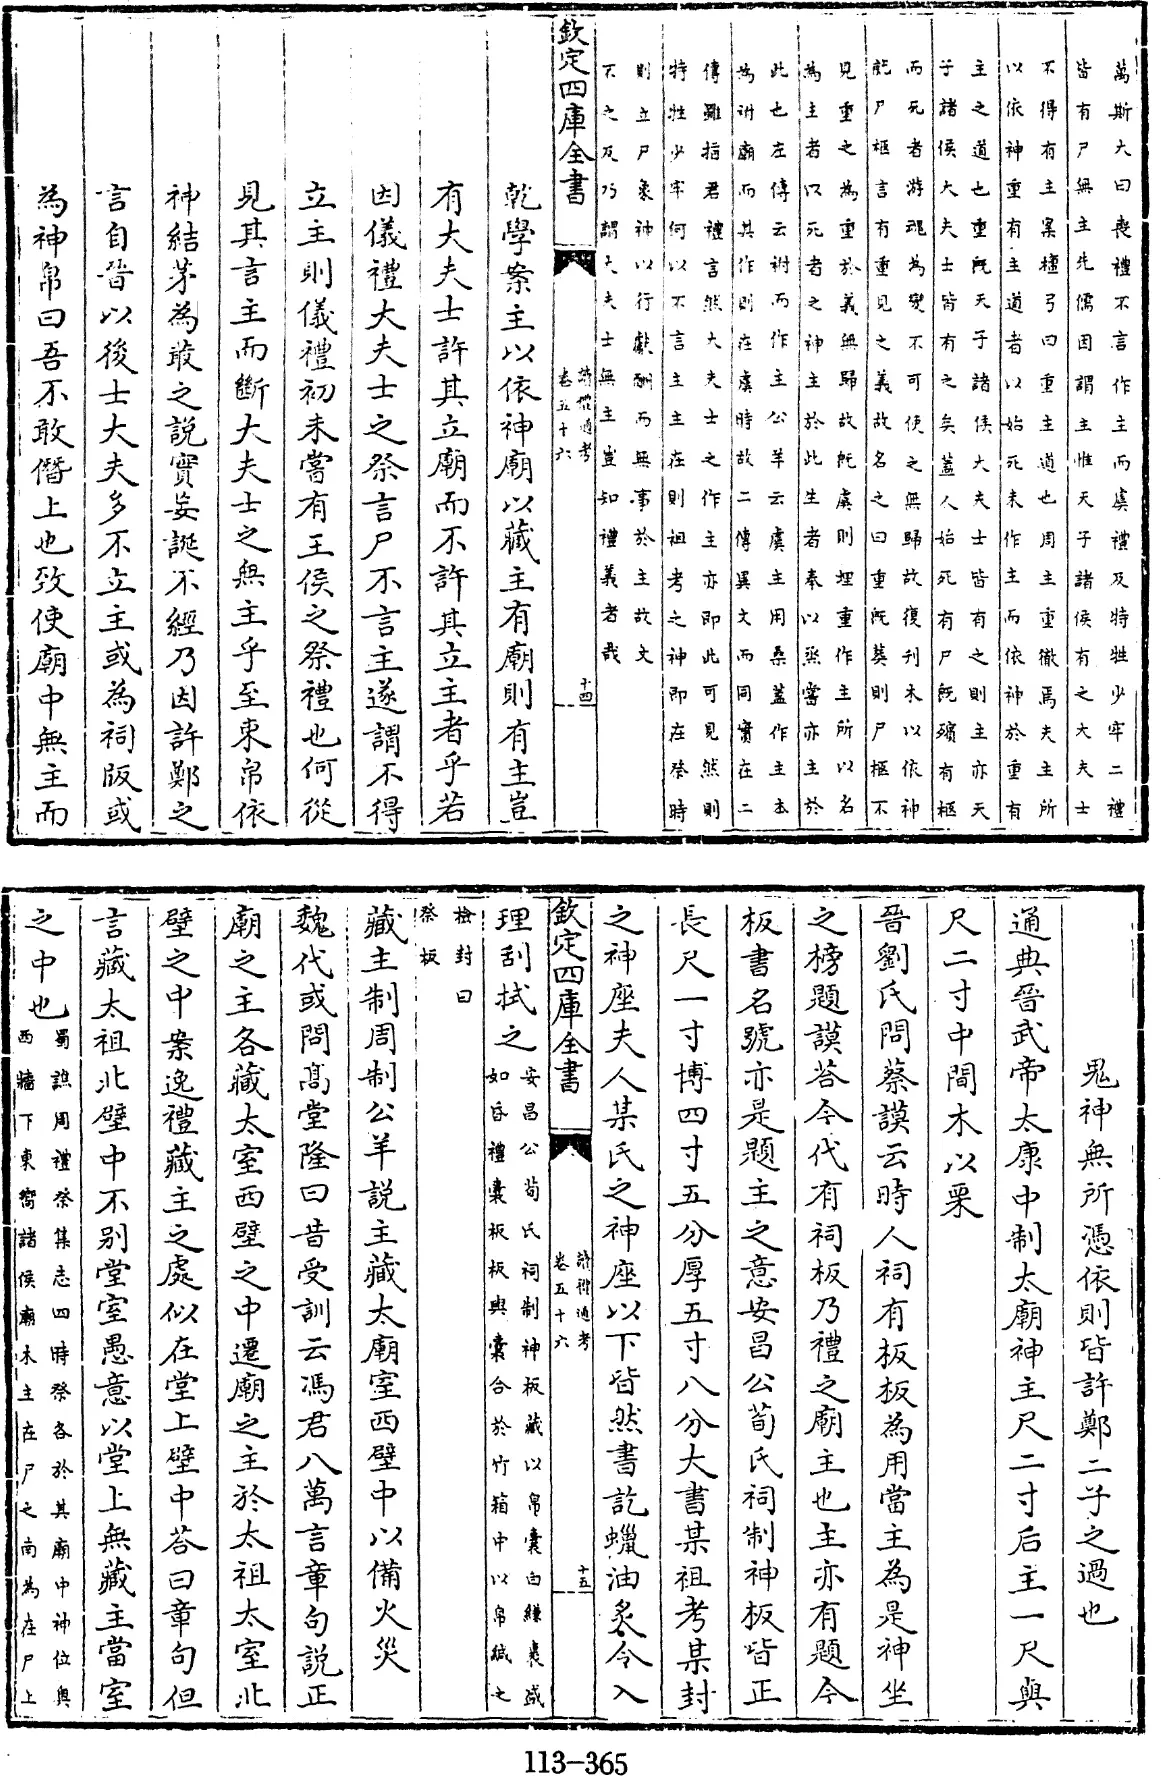 萬斯大曰喪禮不言作主而虞禮及特牲少牢二禮
皆有尸無主先儒因謂主惟天子諸侯有之大夫士
不得有主案檀弓曰重主道也周主重徹焉夫主所
以依神重有主道者以始死未作主而依神於重有
主之道也重既天子諸侯大夫士皆有之則主亦天
子諸侯大夫士皆有之矣蓋人始死有尸既殯有柩
而死者游魂為變不可使之無歸故復刋木以依神
尸柩言有重見之義故名之曰重既葬則尸柩不
見重之為重於義無歸故既虞則埋重作主所以名
為主者以死者之神主於此生者奉以祭嘗亦主於
此也左傳云祔而作主公羊云虞主用桑蓋作主本
為祔廟而其作則在虞時故二傳異文而同實在二
傳雖指君禮言然大夫士之作主亦即此可見然則
特牲少牢何以不言主主在則祖考之神即在祭時
則立尸象神以行獻酬而無事於主故文
不之及乃謂大夫士無主豈知禮義者哉
欽定四庫全書
讀禮通考
卷五十六
十四
乾學案主以依神廟以藏主有廟則有主豈
有大夫士許其立廟而不許其立主者乎若
因儀禮大夫士之祭言尸不言主遂謂不得
立主則儀禮初未嘗有王侯之祭禮也何從
見其言主而斷大夫士之無主乎至束帛依
神結茅為菆之說實妄誕不經乃因許鄭之
言自晉以後士大夫多不立主或為祠版或
為神帛曰吾不敢僭上也致使廟中無主而
鬼神無所憑依則皆許鄭二子之過也
通典晉武帝太康中制太廟神主尺二寸后主一尺與
尺二寸中間木以栗
晉劉氏問蔡謨云時人祠有板板為用當主為是神坐
之榜題謨荅今代有祠板乃禮之廟主也主亦有題今
板書名號亦是題主之意安昌公荀氏祠制神板皆正
長尺一寸博四寸五分厚五寸八分大書某祖考某封
之神座夫人某氏之神座以下皆然書訖蠟油炙令入
欽定四庫全書
讀禮通考
卷五十六
十五
理刮拭之
安昌公荀氏祠制神板藏以帛囊白縑裹盛
如昏禮囊板板與囊合於竹箱中以帛緘之
檢封曰
祭板
藏主制周制公羊說主藏太廟室西壁中以備火災
魏代或問髙堂隆曰昔受訓云馮君八萬言章句說正
廟之主各藏太室西壁之中遷廟之主於太祖太室北
壁之中案逸禮藏主之處似在堂上壁中荅曰章句但
言藏太祖北壁中不别堂室愚意以堂上無藏主當室
之中也
蜀譙周禮祭集志四時祭各於其廟中神位奥
西牆下東嚮諸侯廟木主在尸之南為在尸上
113-365